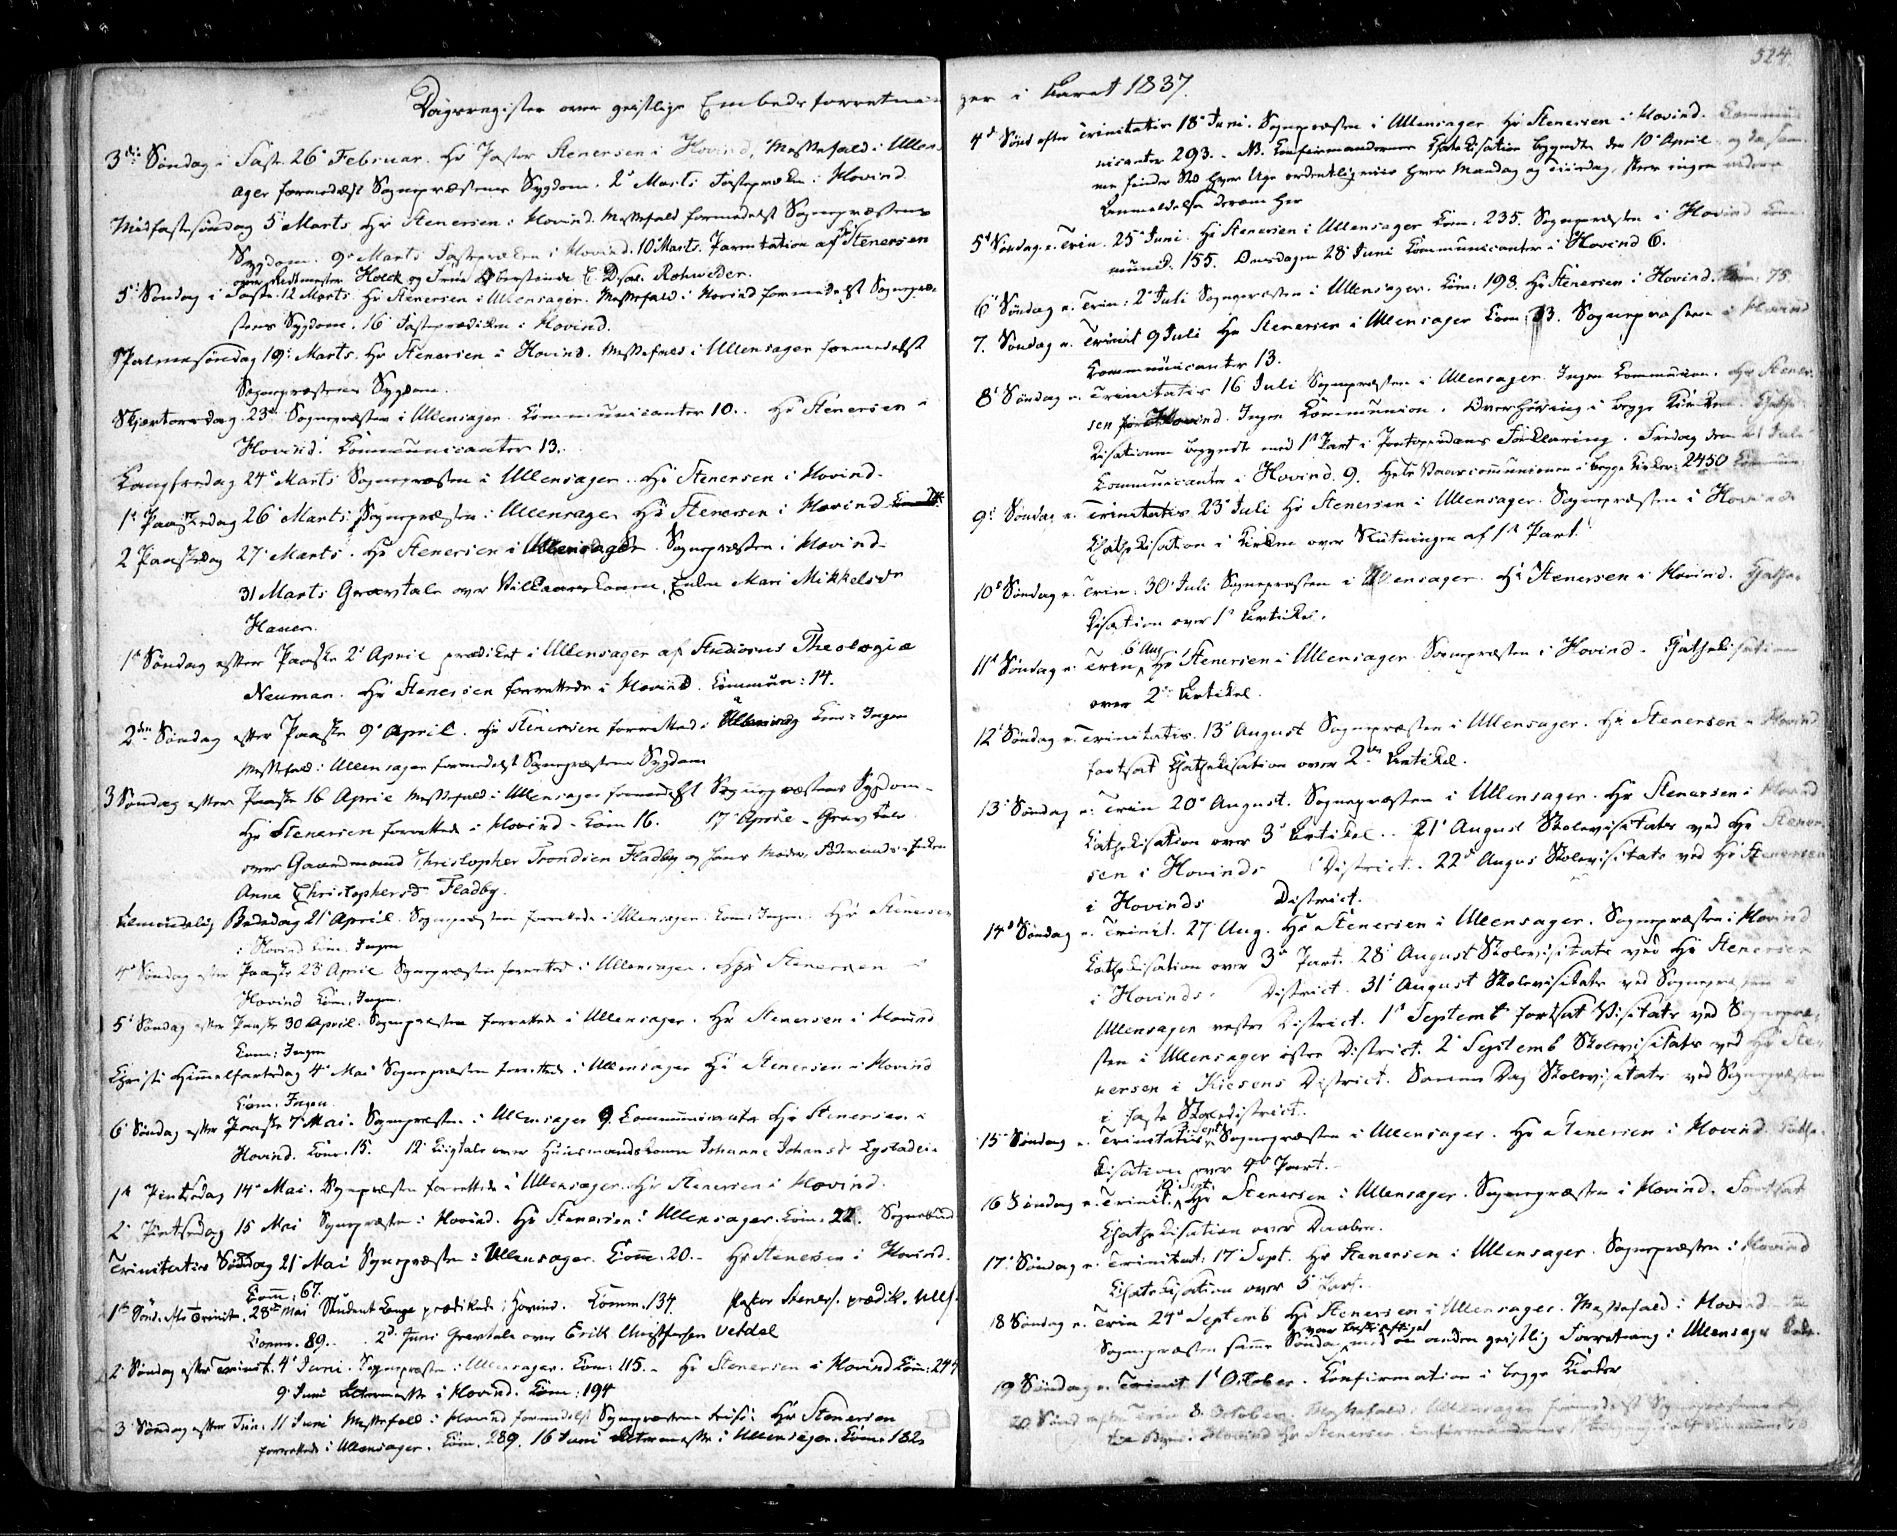 Dagsregister over geistlige Embedsforretnin
3die Søndag i Faste 26de Februar. Hr Pastor Stenersen i Hovind, Messefald i Ullens
ager formedelst Sognepræstens Sygdom. 2d Marts Fasteprædiken i Hovind
Midfastesøndag 5 Marts Hr Stenersen i Hovind. Messefald formedelst Sognepræstens
Sygdom. 9d Marts Fasteprædiken i Hovind. 10d Marts. Parentation af Hr Stenersen
over Rittmester Holck og Frue
Rohweder.
5d Søndag i Faste 12 Marts. Hr Stenersen i Ullensager. Messefald i Hovind formedelst Sognepræ-
stens Sygdom. 16d Fasteprædiken i Hovind.
Palmesøndag 19d Marts. Hr Stenersen i Hovind. Messefald i Ullensager formedelst
Sognepræstens Sygdom.
Skjærtorsdag 23d Sognepræsten i Ullensager. Communicanter 10. Hr Stenersen i
Hovind. Communicanter 13.
Langfredag 24d Marts Sognepræsten i Ullensager. Hr Stenersen i Hovind.
1d Paaskedag 26d Marts. Sognepræsten i Ullensager Hr Stenersen i Hovind
2 Paaskedag 27d Marts. Hr Stenersen i Ullensager. Sognepræsten i Hovind
31 Marts Gravtale over Enken Mari Mikkelsdr
Hauer.
1d Søndag efter Paaske 2d April prædiket i Ullensager af Studiosus Theologiæ
Neuman. Hr Stenersen forrettede i Hovind. Commun: 14.
2den Søndag efter Paaske 9d April. Hr Stenersen forrettede i Ullensag Com: Ingen
Messefald i Ullensager formedelst Sognepræstens Sygdom
3 Søndag efter Paaske 16 April Messefald i Ullensager formedelst Sognepræstens Sygdom.
Hr Stenersen forrettede i Hovind. Com 16. 17d April. Gravtale
over Gaardmand Christopher Trondsen Fladby og hans Moder,
Anna Christophersd Fladby.
Almindelig Bededag 21d April. Sognepræsten forrettede i Ullensager. Com: Ingen. Hr Stenersen
i Hovind Com. Ingen
4d Søndag efter Paaske 23 April Sognepræsten forrettede i Ullensager. Hr Stenersen i
Hovind Com. Ingen.
5d Søndag efter Paaske 30 April. Sognepræsten forrettede i Ullensager. Hr Stenersen i Hovind
Com: Ingen
Christi Himmelfartsdag 4d Mai Sognepræsten forrettede i Ullensager Hr Stenersen i Hovind
Com. Ingen.
6d Søndag efter Paaske 7d Mai. Sognepræsten i Ullensager 9 Communicanter Hr Stenersen i
Hovind. Com. 15. 12d Liigtale over Huusmandskonen Johanne Johansd
1ste Pintsedag 14d Mai. Sognepræsten forrettede i Ullensager. Hr Stenersen i Hovind.
2d Pintsedag 15 Mai Sognepræsten i Hovind. Hr Stenersen i Ullensager. Com. 22.
Trinitatis Søndag 21d Mai Sognepræsten i Ullensager. Comm. 20. Hr Stenersen i Hovind.
Comm. 67.
1ste Sønd. efter Trinit. 28de Mai Student Lange prædikede i Hovind. Comm. 134. Pastor Steners. prædik. Ulls.
Comm. 89. 2d Juni Gravtale over Erik Christophersen Uetdal
2d Søndag efter Trinit. 4d Juni. Sognepræsten i Ullensager. Com: 115. Hr Stenersen i Hovind Com: 244
9d Juni Altermesse i Hovind. Com: 194
3d Søndag efter Trin. 11 Juni Messefald i Hovind formedelst Sognepræstens Hr Stenersen
forrettede i Ullensager. Com. 289. 16 Juni Altermesse i Ullensager. Com: 182
524
ger i Aaret 1837.
4d Sønd efter Trinitatis 18d Juni. Sognepræsten i Ullensager Hr Stenersen i Hovind. Commu-
nicanter 293. NB. Confirmandernes Chatekisation begyndte den 10d April og da sam-
me finder Sted hver Uge ordentligviis hver Mandag og Tiirsdag, skeer ingen videre
Anmeldelse derom her
5d Søndag e. Trin. 25d Juni. Hr Stenersen i Ullensager Com: 235. Sognepræsten i Hovind Com-
munic. 155. Onsdagen 28d Juni Communicanter i Hovind 6.
6d Søndag e. Trin: 2d Juli Sognepræsten i Ullensager. Com: 198. Hr Stenersen i Hovind. Com: 75
7. Søndag e. Trinit 9 Juli Hr Stenersen i Ullensager Com 13. Sognepræsten i Hovind
Communicanter 13.
8d Søndag e. Trinitatis 16 Juli Sognepræsten i Ullensager. Ingen Communion. Hr Stener-
sen i Hovind. Ingen Communion. Overhøring i begge Kirker. Chathe-
kisationen begyndte med 1d Part i Pontoppidans Forklaring. Fredag den 21 Juli
Communicanter i Hovind. 9. Hele Vaarcommunionen i begge Kirker: 2450 Commun:
9d Søndag e. Trinitatis 23d Juli Hr Stenersen i Ullensager. Sognepræsten i Hovind
Chathekisation i Kirken over Slutningen af 1d Part.
10d Søndag e. Trin. 30d Juli Sognepræsten i Ullensager. Hr Stenersen i Hovind. Chathe-
kisation over 1d Artikel.
11d Søndag e. Trin 6 Aug Hr Stenersen i Ullensager Sognepræsten i Hovind. Chathekisation
over 2d Artikel.
12d Søndag e. Trinitatis. 13d August Sognepræsten i Ullensager. Hr Stenersen i Hovind
fortsat Chathekisation over 2den Artikel.
13d Søndag e. Trin 20d August. Sognepræsten i Ullensager. Hr Stenersen i Hovind
Cathekisation over 3d Artikel. 21d August Skolevisitats ved Hr Stener-
sen i Hovinds District. 22d Augus Skolevisitats ved Hr Stenersen
i Hovinds District.
14d Søndag e. Trinit. 27 Aug. Hr Stenersen i Ullensager. Sognepræsten i Hovind
Cathekisation over 3d Part. 28d August Skolevisitats ved Hr Stenersen
i Hovinds District. 31d August Skolevisitats ved Sognepræsten i
Ullensager vestre District. 1d Septemb fortsat Visitats ved Sognepræ-
sten i Ullensager østre District. 2d Septemb Skolevisitats ved Hr Ste-
nersen i Kiesens District. Samme Dag Skolevisitats ved Sognepræsten
i faste Skoledistrict.
15d Søndag e. Trinitatis 3 Sept Sognepræsten i Ullensager. Hr Stenersen i Hovind. Cathe-
kisation over 4d Part.
16 Søndag e. Trinit. 10 Sept. Hr Stenersen i Ullensager. Sognepræsten i Hovind. Fortsat
Chathekisation over Daaben.
17d Søndag e. Trinitat. 17 Sept. Hr Stenersen i Ullensager. Sognepræsten i Hovind
Chatekisation over 5 Part.
18 Søndag e. Trin 24d Septemb Hr Stenersen i Ullensager. Messefald i Hovind da
Sognepræsten samme Søndag var beskjæftiget med en anden geistlig Forretning i Ullensager
19 Søndag e. Trinit 1d October. Confirmation i begge Kirker
20 Sønd efter Trin 8. October. Messefald i Ullensager formedelst Sognepræstens
i Hovind Hr Stenersen.